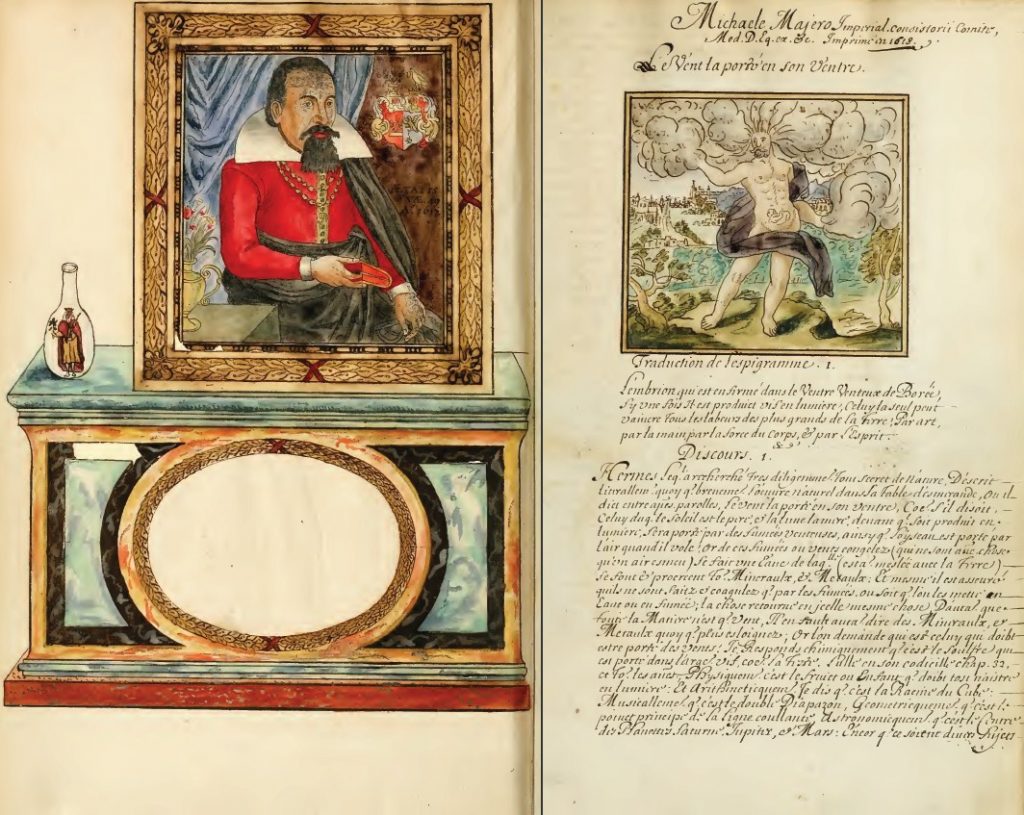 ÆTATIS
SVÆ 49
1617
Michaele Majero Imperial. consistorii Comite,
Med. D. Eq. ex. &c. Imprimé en 1618.
Le Vent la porté en son Ventre.
Traduction de l'espigramme. 1.
Lembrion qui est enfirmé dans le Ventre Venteux de Borée,
Sy vne fois Il est produict vif en lumiere; Celuy la seul peut
vaincre tous les labeurs des plus grands de la tirre; Par art,
par la main par la force du Corps, & par l'Esprit.
Discours. 1.
Hermes arecherché tres diligemme tout secret de Nature, Descrit
literallem quoy q. breueme l'oeuure naturel dans sa table desmeraude, ou il
dict entre aues parolles, Le vent la porté en son ventre, Coe s'il disoit,
Celuy duq. le Soleil est le pere, & la lune la mere, deuant q. soit produit en
lumiere, sera porté par des fumées venteuses, ainsy q. l'oyseau est porté par
l'air quand il vole: Or de ces fumées ou vents congelez (qui ne sont aue chose
qu'vn air esmeu) se fait vne Eaue de laq. (esta meslée auec la tirre)
se font & procedent to. Mineraulx, & Metaulx. Et mesme il est asseuré
quils ne sont faitz & coagulez q. par les fumées, ou soit q. lon les mette en
Eaue ou en fumée; la chose retourne en jcelle mesme chose; Dauta que
toute la Matire n'est q. Vent, Il en fault auta dire des Mineraulx, et
Metaulx quoy q. plus esloignez; Or lon demande qui est celuy qui doibt
estre porté des Vents: Je Responds chimiquement q. c'est le soulfre qui
est porté dans larg. vif, coe la testé. Lulle en son codicille chap. 32,
et to. les aues. Physiquem c'est le fruict ou Enfant q. doibt tost naistre
en lumiere: Et Arithmetiquem Je dis q. c'est la Racine du Cube:
Musicallemt q. c'est le double Diapazon, Geometricqueme q. c'est le
poinct principe de la ligne coullante, Astronomicquem q. c'est le Centre
des Planettes Saturne, Jupiter, & Mars: Encor q. ce soient diuers sujets